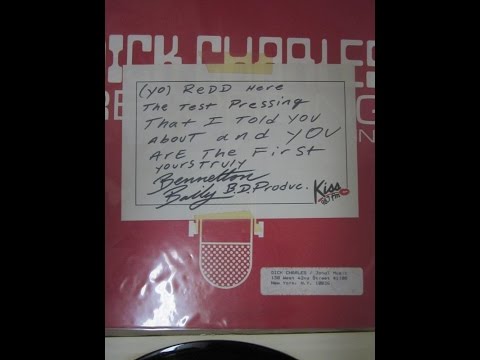 DICK CHARLES
RE G
N
(YO) ReDD Here
The Test Pressing
That I Told YOU
About and YOU
Are The First
yours Truly
Bennetton
Baily B.D Produc.
Kiss
FM
DICK CHARLES / Jewel Music
130 West 42nd Street #1106
New York, N.Y. 10036